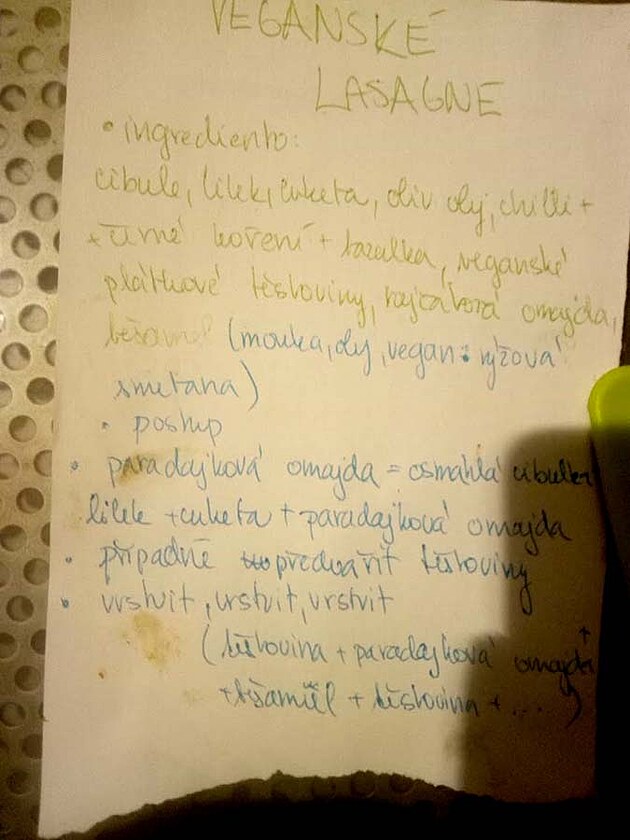 VEGANSKÉ
LASAGNE
• ingrediento:
cibule, lilek, cuketa, oliv. olej, chilli +
+ různé koření + bazalka, veganské
plátkové těstoviny, rajčatová omajda,
bešamel (mouka, olej, vegan: rýžová
smetana)
• postup
• paradajková omajda = osmahlá cibulka
lilek + cuketa + paradajková omajda
• případně předvařit těstoviny
• vrstvit, vrstvit, vrstvit
(těstovina + paradajková omajda +
+ bešamel + těstovina + ...)